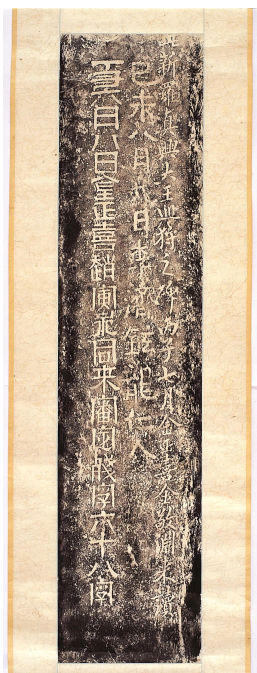 此新羅眞興大王巡狩之碑丙子七月金正喜金敬淵來讀
己未八月廿日李濟鉉龍仁人
丁丑六月八日金正喜趙寅永同來審定殘字六十八字